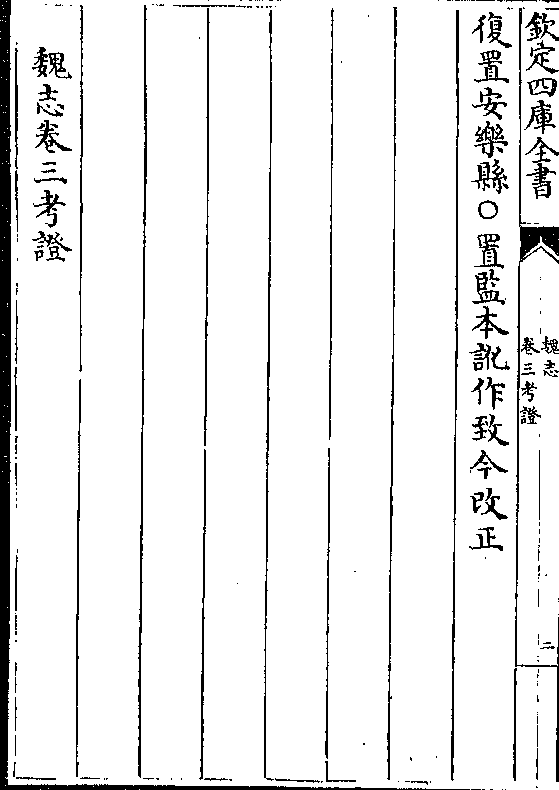 欽定四庫全書
魏志
卷三考證
二
復置安樂縣○置監本訛作致今改正
魏志卷三考證